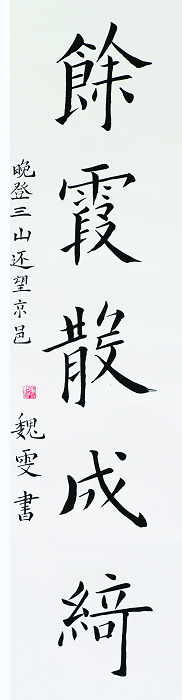 餘霞散成綺
晚登三山还望京邑
魏雯書